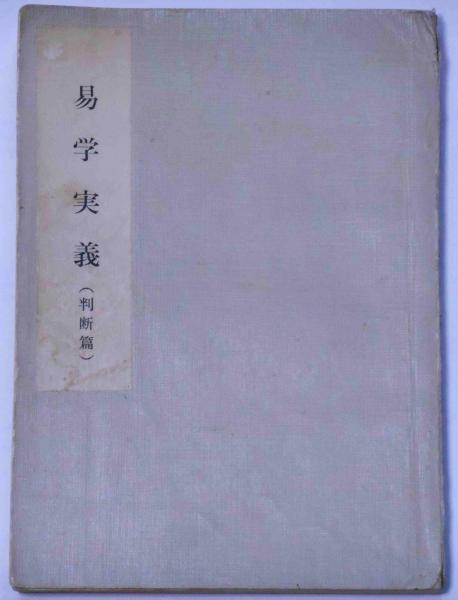 易学実義（判断篇）